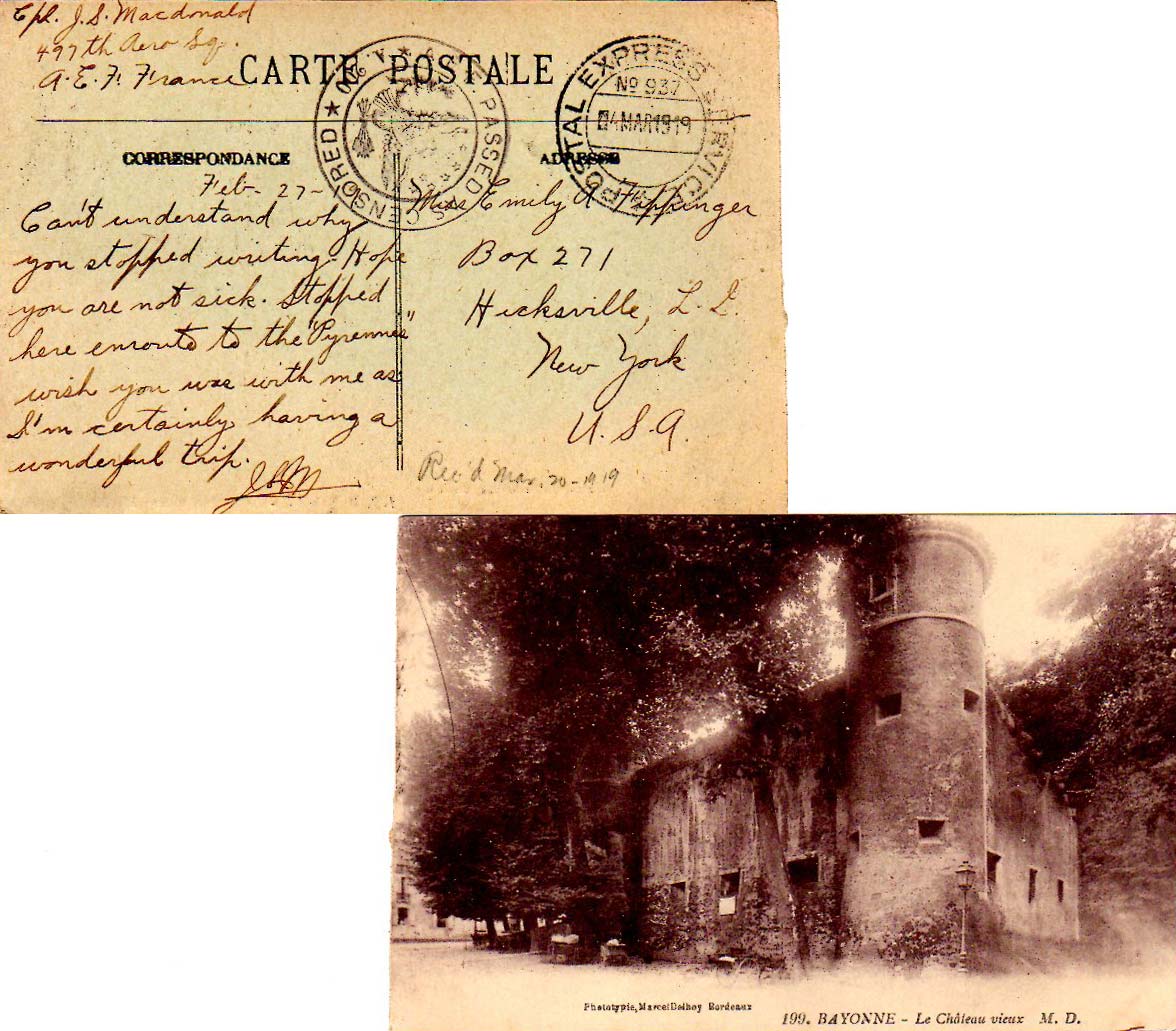 Cpl. J. S. Macdonald
497th Aero Sq.
A. E. F. France
CARTE POSTALE
PASSED AS CENSORED
POSTAL EXPRESS SERVICE
No 937
04 MAR 1919
CORRESPONDANCE
ADRESSE
Feb- 27-
Can't understand why
you stopped writing. Hope
you are not sick. Stopped
here enroute to the "Pyrennes"
wish you was with me as
I'm certainly having a
wonderful trip.
JSM
Miss Emily A
Box 271
Hicksville, L. I.
New York
U. S. A.
Rec'd Mar. 20-1919
Phototypie, Marcel Delboy Bordeaux
199. BAYONNE - Le Château vieux M. D.